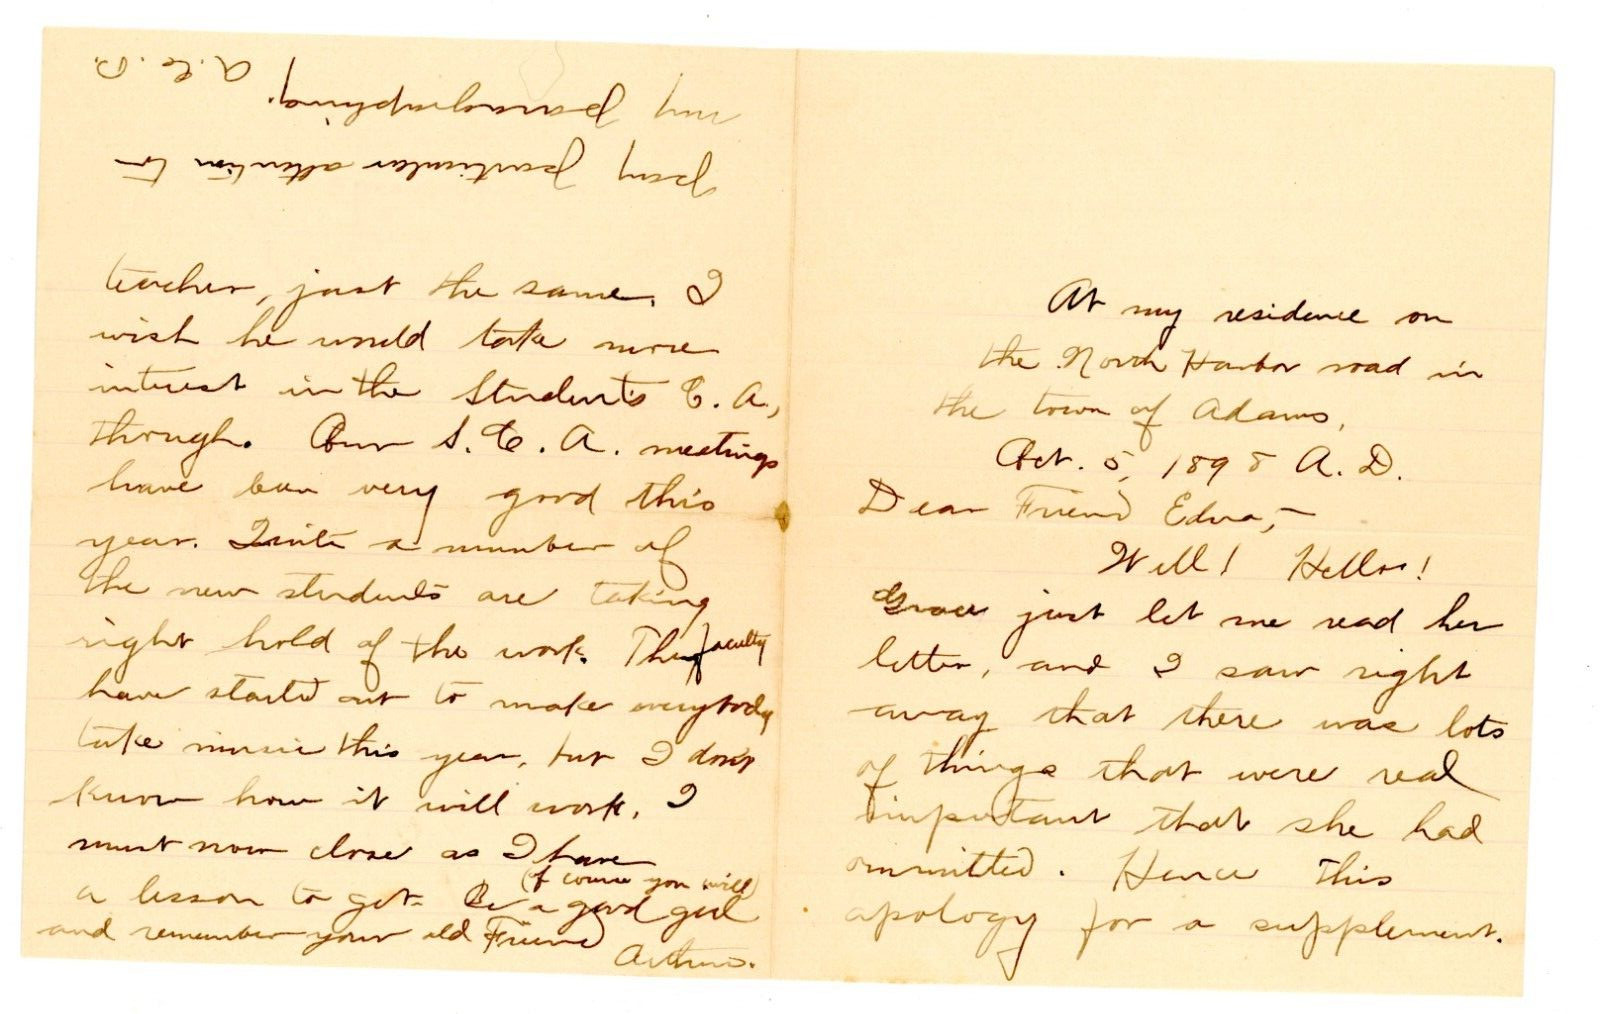 At my residence on
the North Harbor road in
the town of Adams,
Oct. 5, 1898 A. D.
Dear Friend Edna,—
Well! Hello!
Grace just let me read her
letter, and I saw right
away that there was lots
of things that were real
important that she had
ommitted. Hence this
apology for a supplement.
teacher, just the same. I
wish he would take more
interest in the Students C. A.,
though. Our S. C. A. meetings
have been very good this
year. Quite a number of
the new students are taking
right hold of the work. The faculty
have started out to make everybody
take music this year, but I don't
know how it will work. I
must now close as I have
a lesson to get. Be a good girl
(of course you will)
and remember your old Friend
Arthur.
Pay particular attention to
my paragraphing.